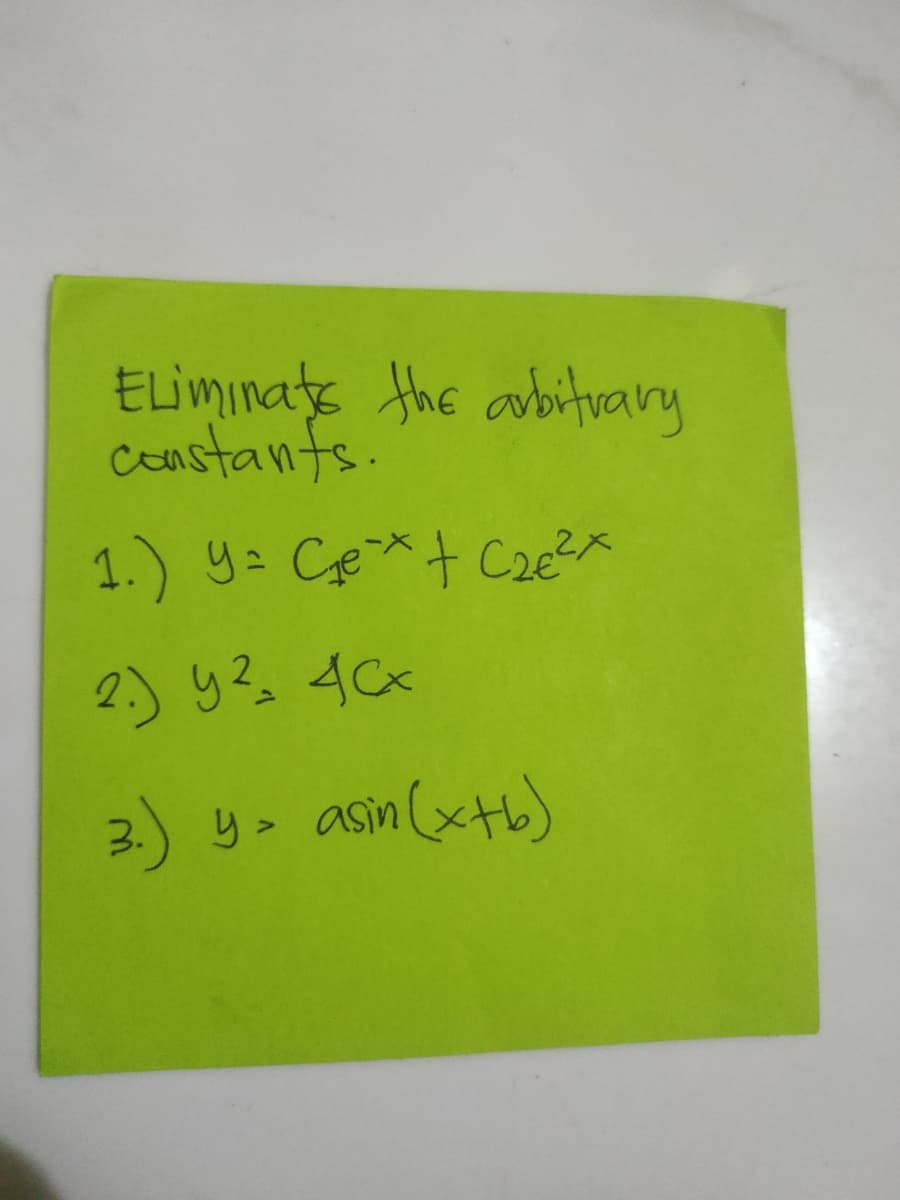 Eliminate the arbitrary
constants.
1.) y = C₁e⁻ˣ + C₂e²ˣ
2.) y² = 4Cx
3.) y = asin(x+b)